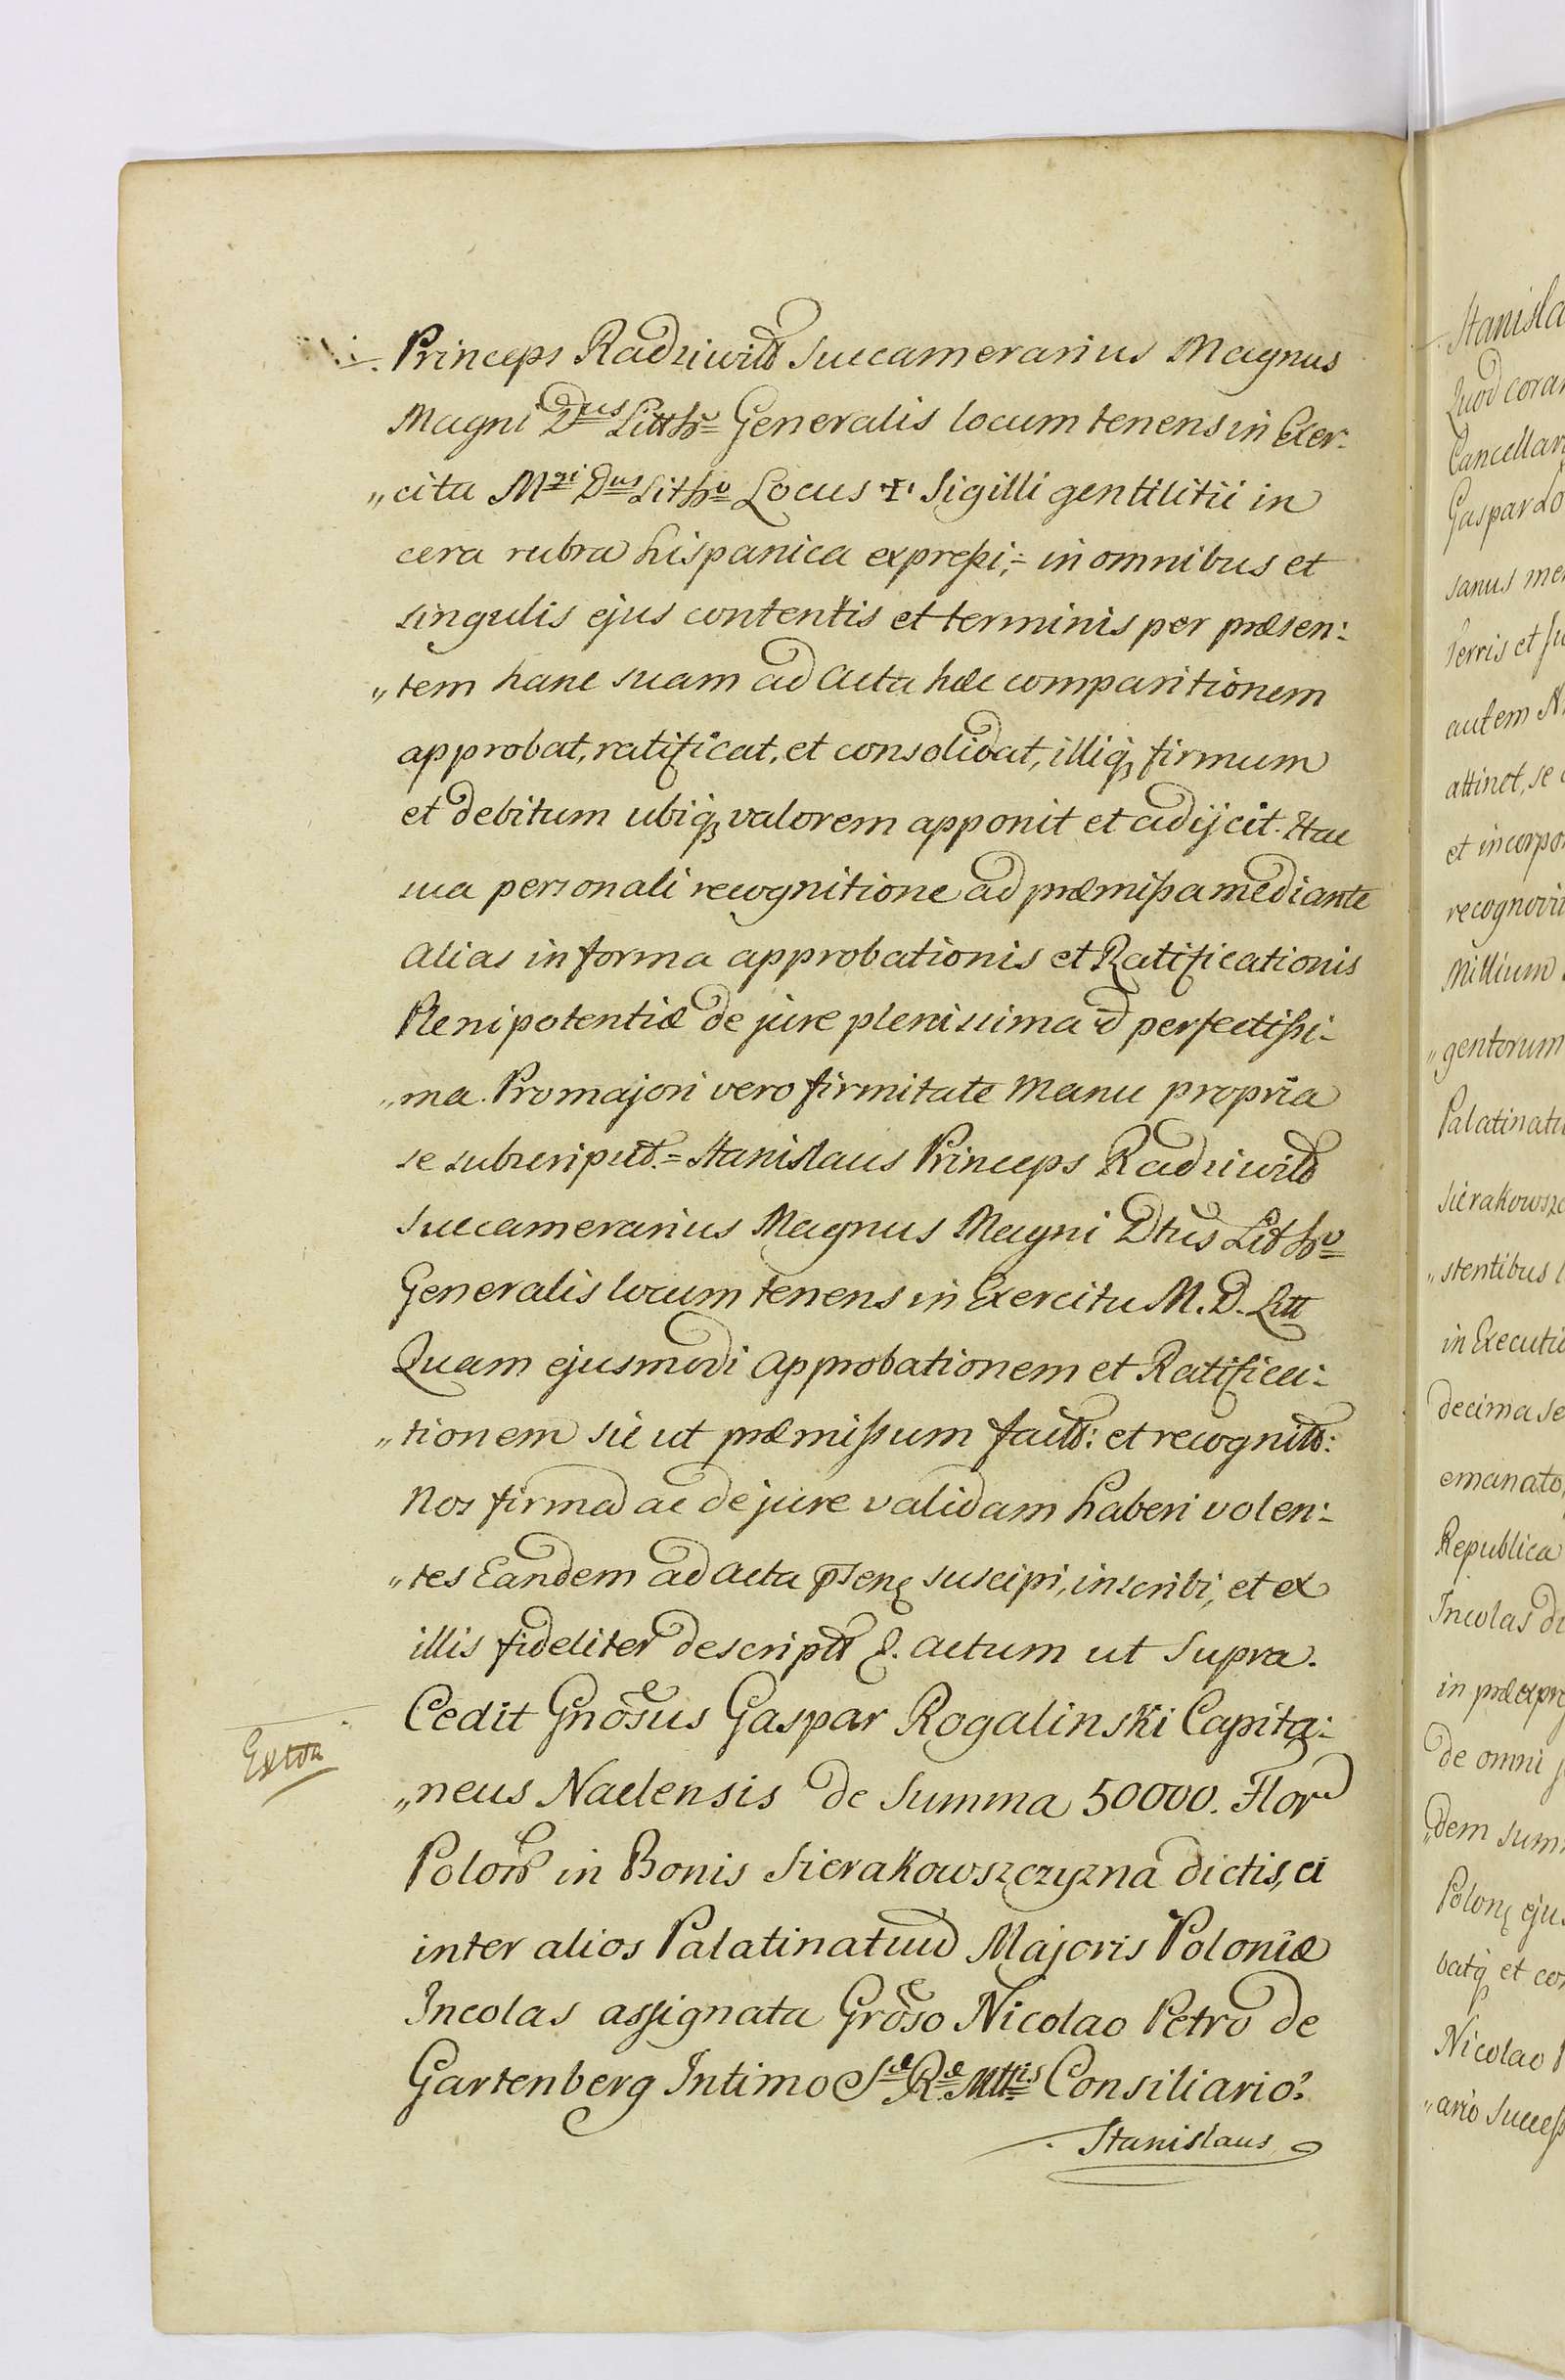 Princeps Radziwill Succamerarius Magnus
Magni Dus Litthv Generalis locum tenens in Exer-
„citu Mgi Dus Lithv Locus ✝ Sigilli gentilitii in
cera rubra hispanica expreßi,= in omnibus et
singulis ejus contentis et terminis per præsen:
„tem hanc suam ad Acta hæc comparitionem
approbat, ratificat, et consolidat, illiq, firmum
et debitum ubiq, valorem apponit et adijcit. Hac
sua personali recognitione ad præmißa mediante
alias in forma approbationis et Ratificationis
Plenipotentiæ de jure plenissima et perfectißi-
„ma. Pro majori vero firmitate manu propria
se subscripsit.= Stanislaus Princeps Radziwill
Succamerarius Magnus Magni Dtus Lithv
Generalis locum tenens in Exercitu M. D. Litt
Quam ejusmodi approbationem et Ratifica-
„tionem sic ut præmißum factt: et recognitt:
Nos firmam ac de jure validam haberi volen:
„tes Eandem ad acta pseng suscipi, inscribi, et ex
illis fideliter descriptt &. actum ut Supra.
Exton
Cedit Gnosus Gaspar Rogalinski Capita:
„neus Naclensis de Summa 50000. Flor
Polon in Bonis Sierakowszczyzna dictis, ei
inter alios Palatinatuum Majoris Poloniæ
Incolas assignata Groso Nicolao Petro de
Gartenberg Intimo Sæ Ræ Mttis Consiliario.
Stanislaus
Stanisla
Quod coram
Cancellar
Gaspar Ro
sanus me
Terris et su
autem N
attinet, se
et incorpo
recognovit
Millium
„gentorum
Palatinatu
Sierakowszc
„stentibus
in Executio
decima se
emanato,
Republica
Incolas di
in præexpre
de omni
„dem sum
Polong eju
batq et co
Nicolao P
„ario Succeß